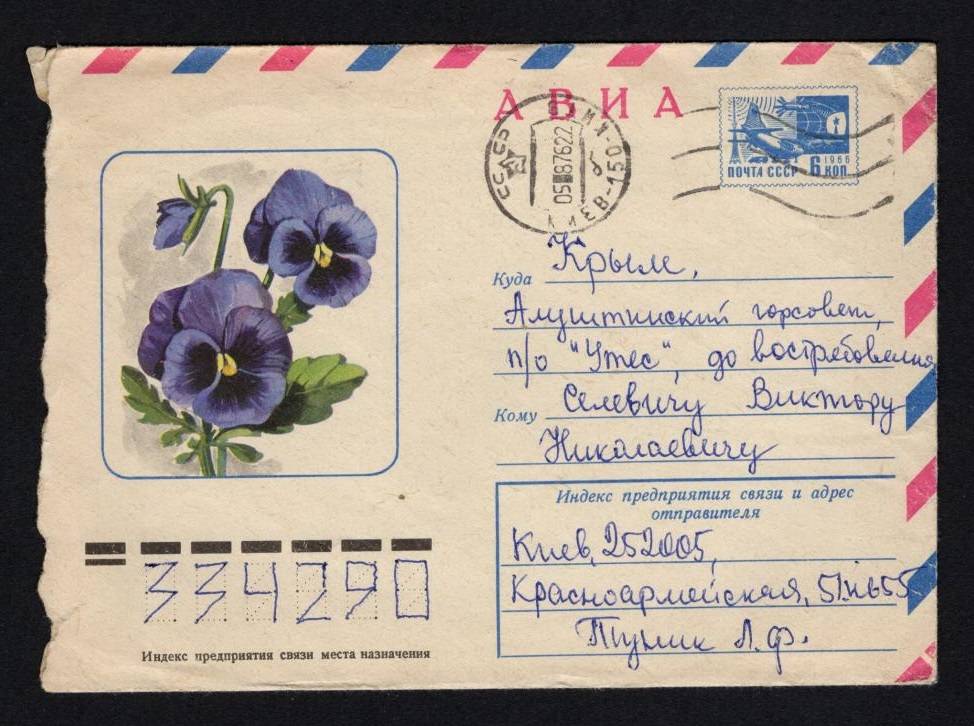 АВИА
СССР
КИЕВ-15
0587622
1966
ПОЧТА СССР 6 КОП.
Куда Крым,
Алуштинский горсовет,
п/о "Утес", до востребования
Кому Селевичу Виктору
Николаевичу
Индекс предприятия связи и адрес
отправителя
Киев, 252005,
Красноармейская, 51 кв 55
Тумик Л. Ф.
334290
Индекс предприятия связи места назначения